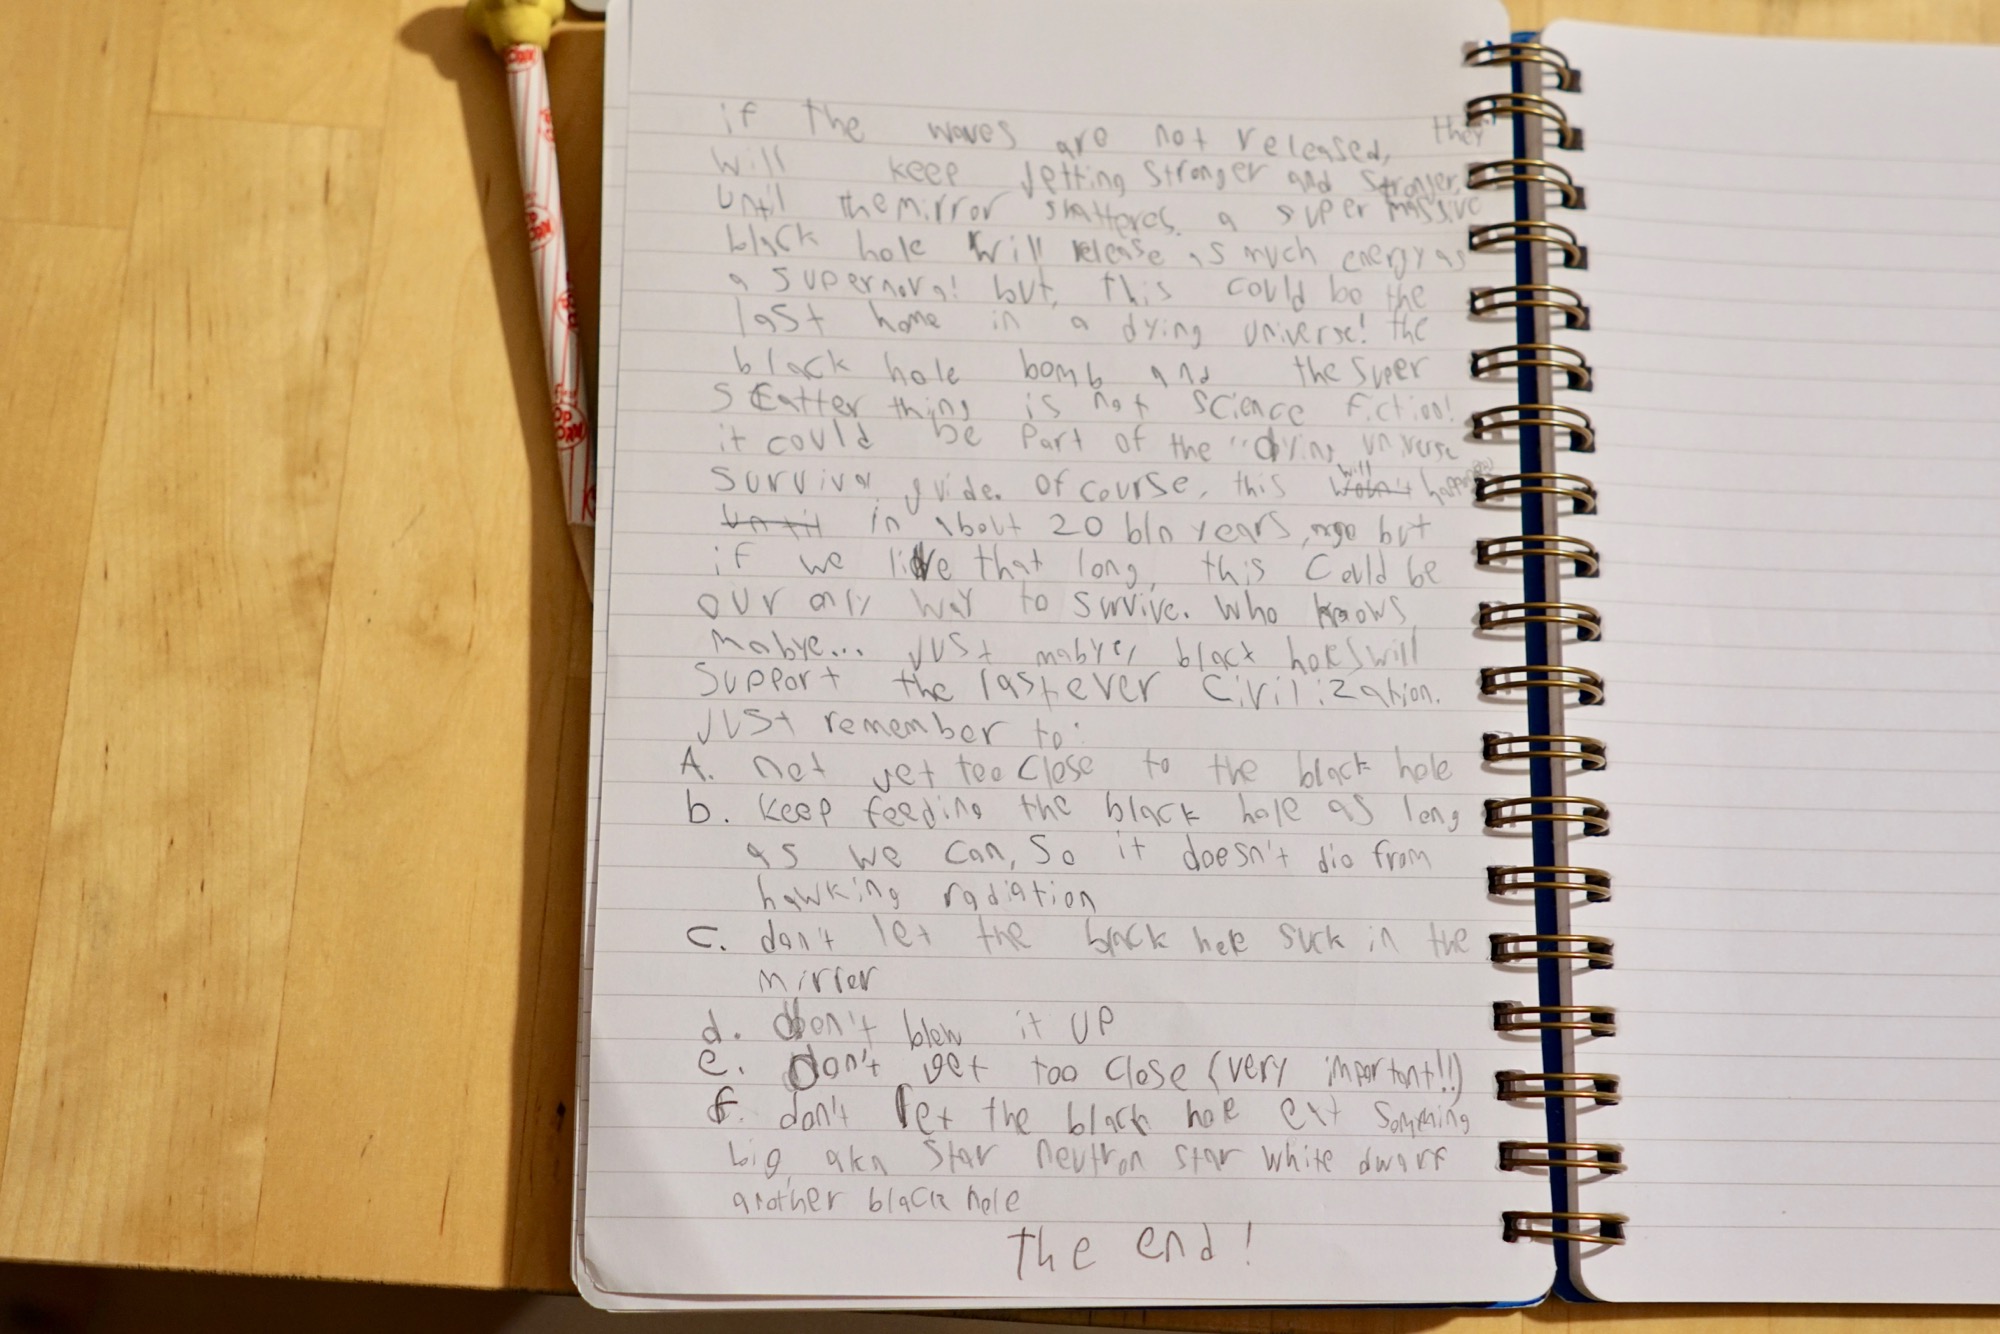 if the waves are not released, they
will keep getting stronger and stronger,
until the mirror shatteres. a super massive
black hole will release as much energy as
a supernova! but, this could be the
last home in a dying universe! the
black hole bomb and the super
scatter thing is not science fiction!
it could be part of the "dying universe
survival guide. of course, this will woln't happen
until in about 20 bln years, ago but
if we live that long, this could be
our only way to survive. who knows,
mabye... just mabye, black holes will
support the last ever civilization.
just remember to:
A. not get too close to the black hole
b. keep feeding the black hole as long
as we can, so it doesn't die from
hawking radiation
c. don't let the black hole suck in the
mirror
d. don't blow it up
e. don't get too close (very important!!)
f. don't let the black hole eat something
big aka star neutron star white dwarf
another black hole
the end!